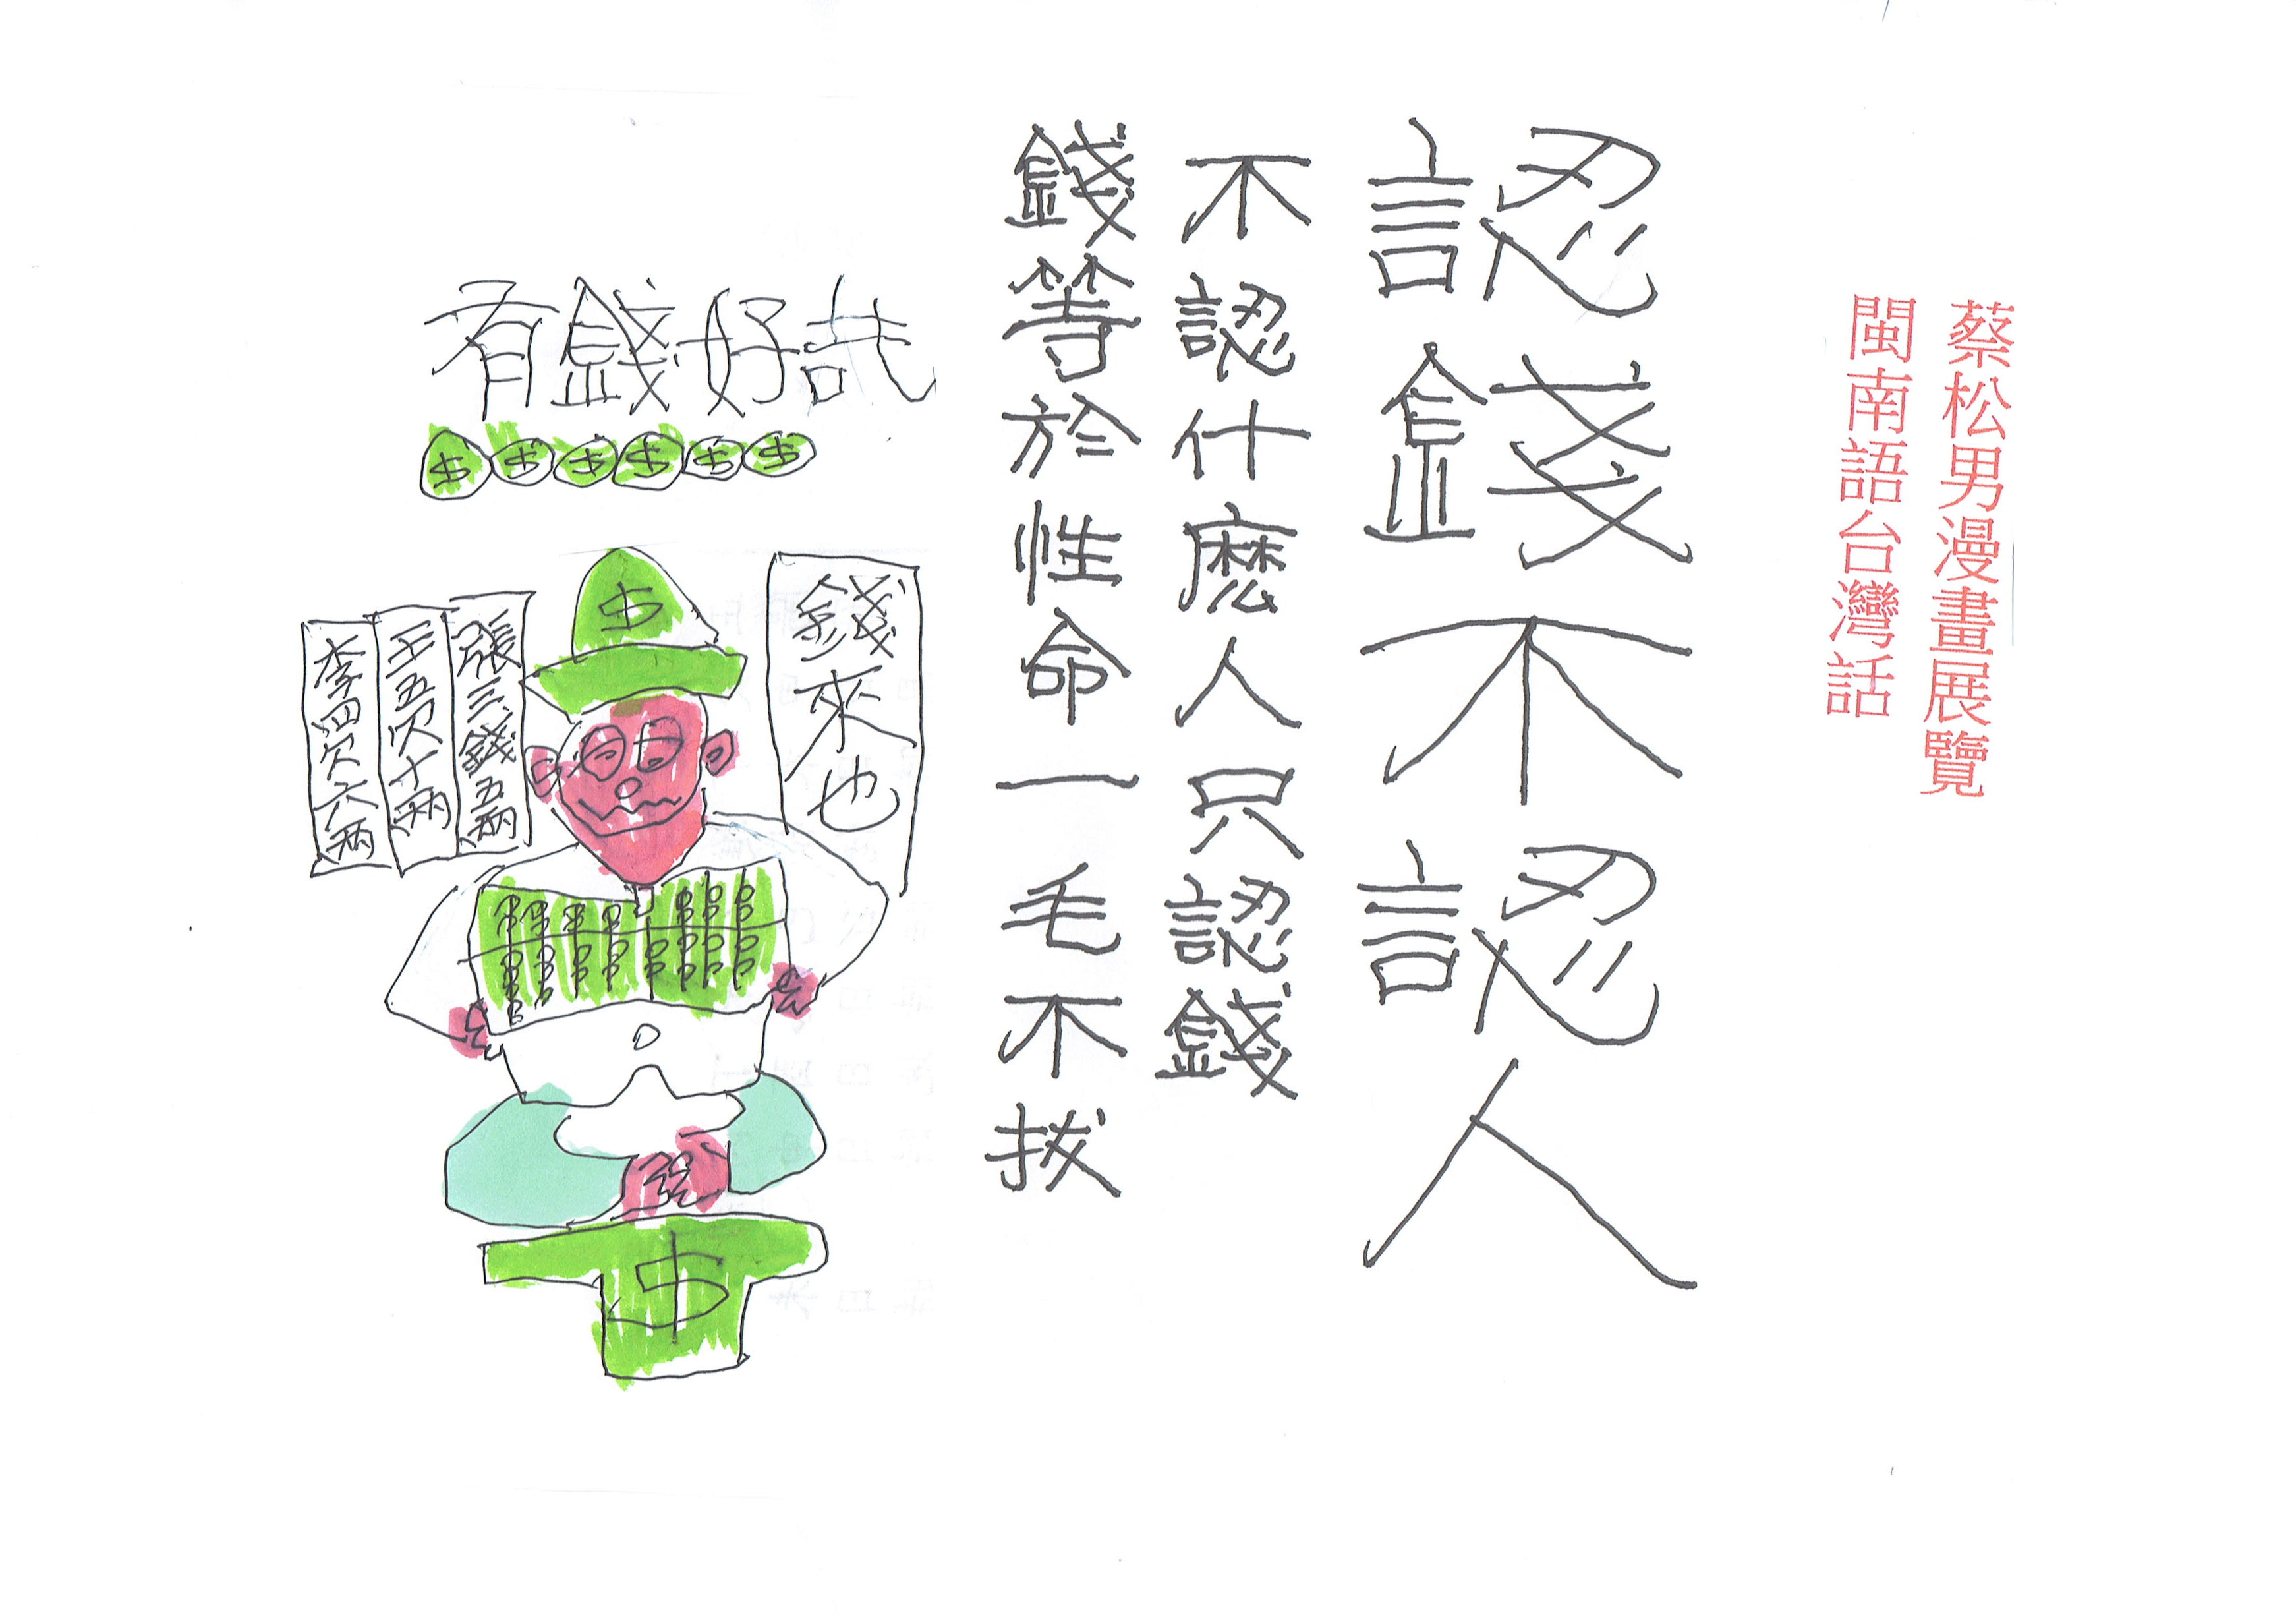 蔡松男漫畫展覽
閩南語台灣話
認錢不認人
不認什麼人只認錢
錢等於性命一毛不拔
有錢好哉
$ $ $ $ $ $
錢來也
$
張三錢五兩
王五欠十兩
李四欠六兩
$